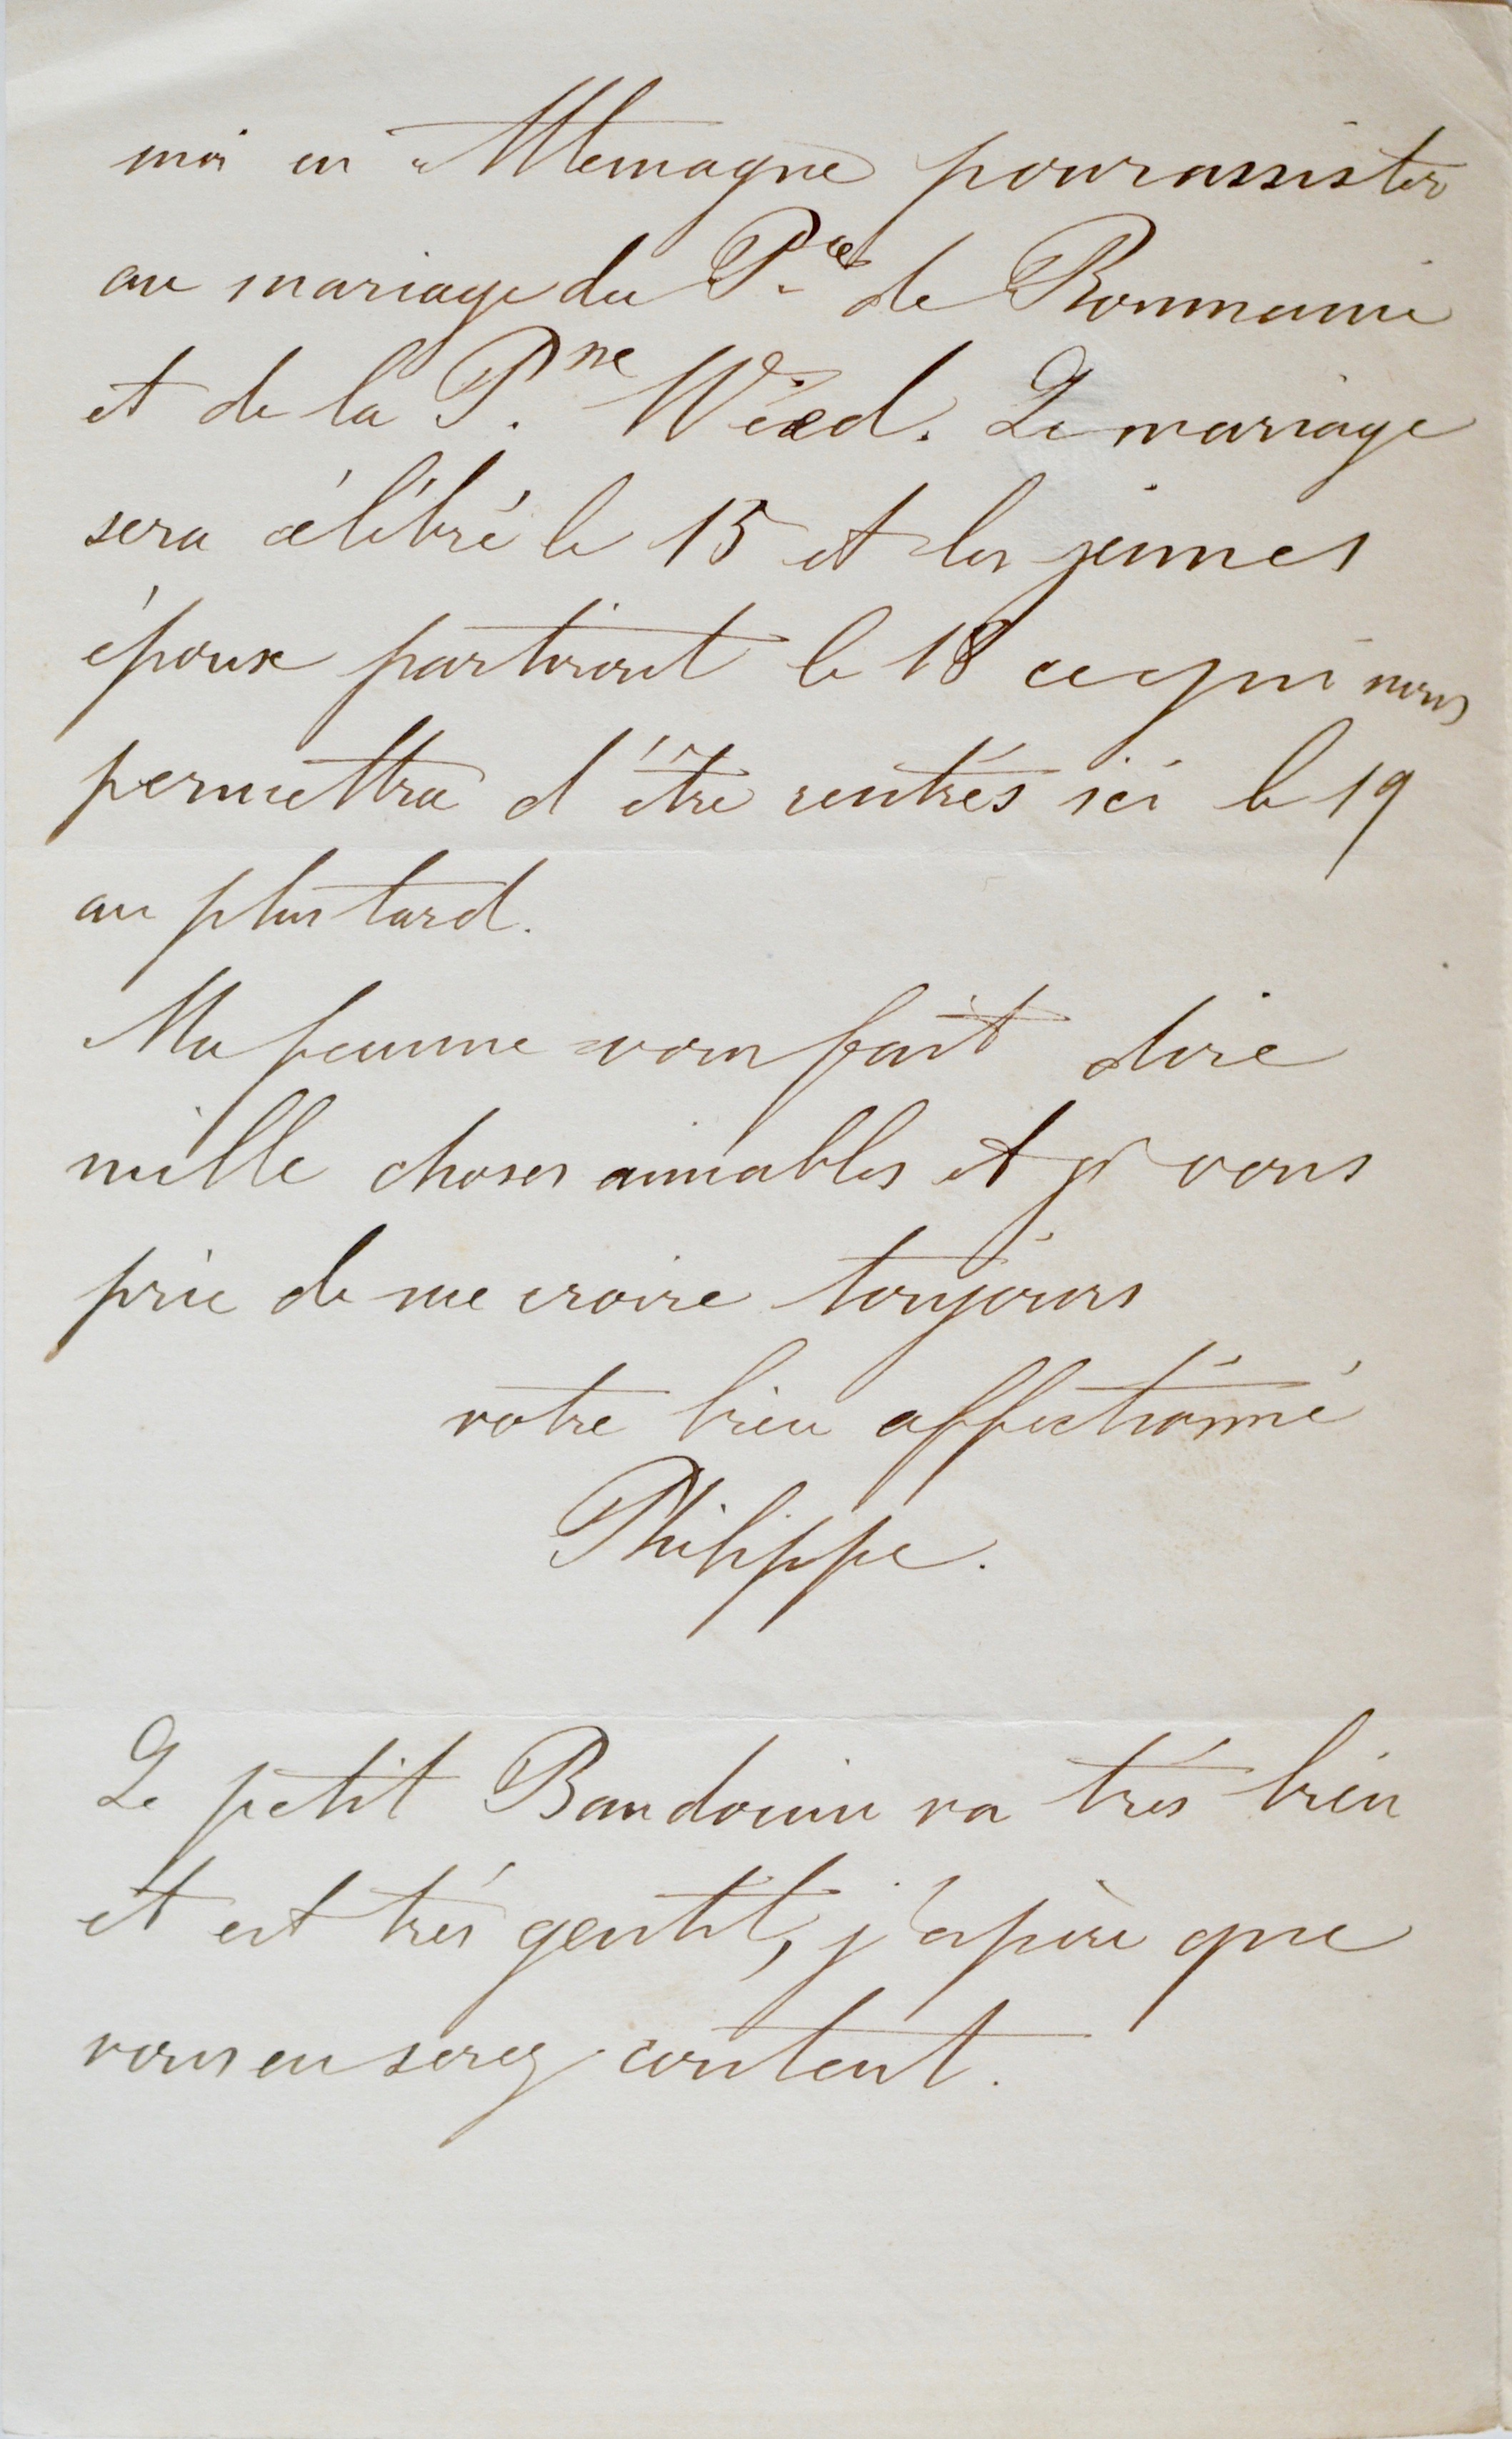 moi en Allemagne pour assister
au mariage du Pce de Roumanie
et de la Psse Wied. Le mariage
sera célébré le 15 et les jeunes
époux partiront le 18 ce qui nous
permettra d'être rentrés ici le 19
au plus tard.
Ma femme vous fait dire
mille choses aimables et je vous
prie de me croire toujours
votre bien affectionné
Philippe.
Le petit Baudouin va très bien
et est très gentil, j'espère que
vous en serez content.